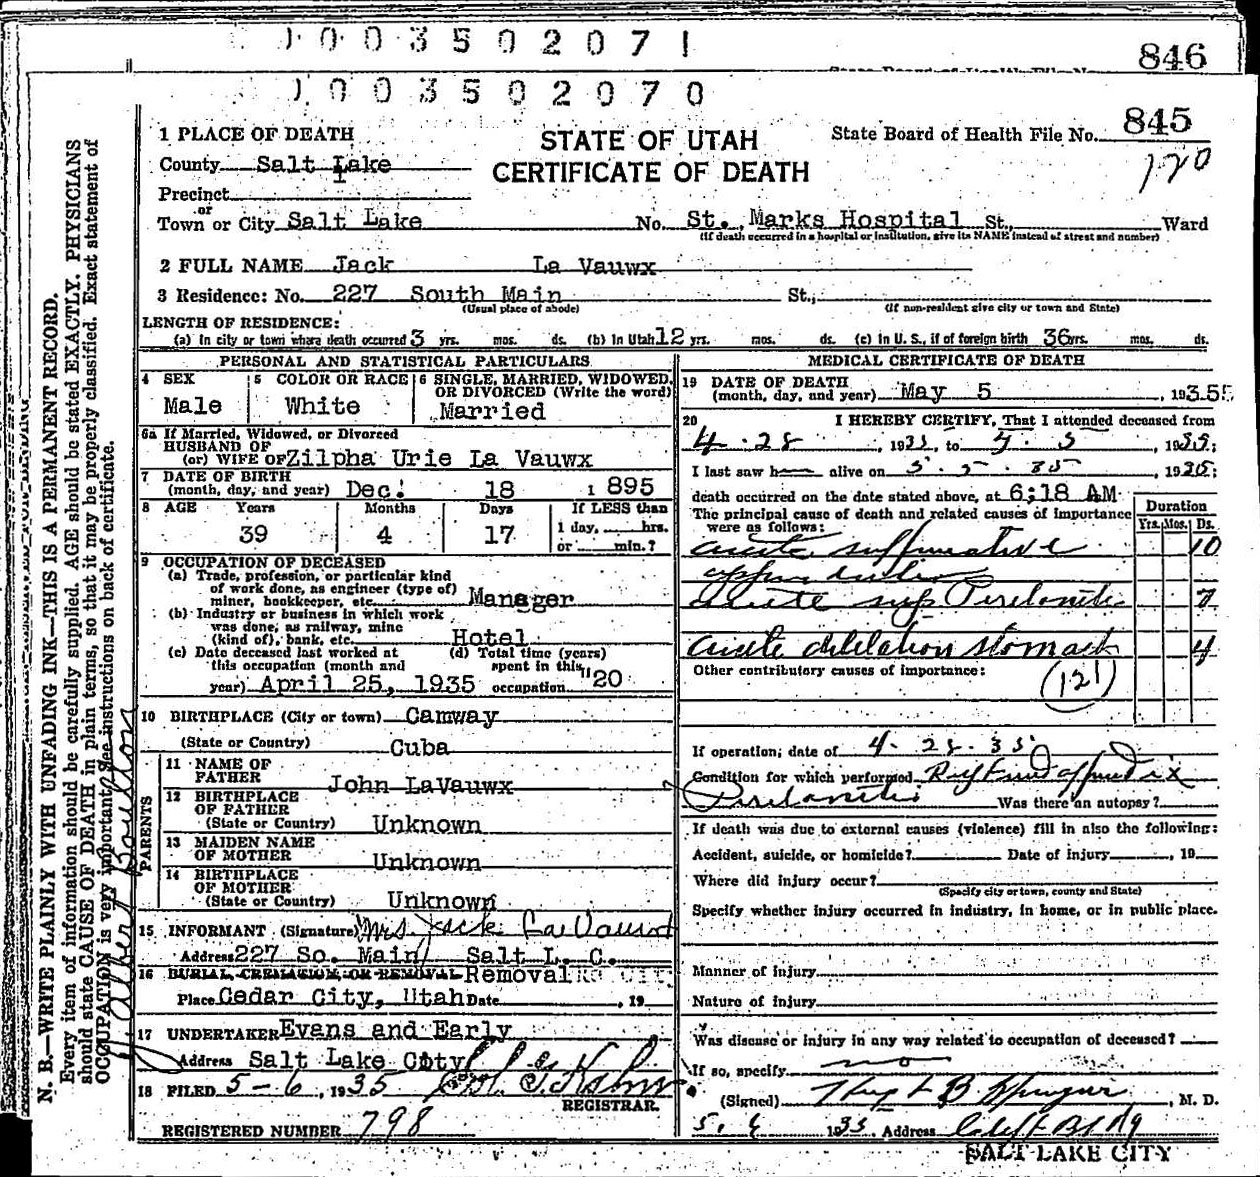 1003502071
846
1003502070
1 PLACE OF DEATH
STATE OF UTAH
CERTIFICATE OF DEATH
State Board of Health File No. 845
120
County Salt Lake
Precinct
or
Town or City Salt Lake No. St. Marks Hospital St., Ward
(If death occurred in a hospital or institution, give its NAME instead of street and number)
2 FULL NAME Jack La Vauwx
3 Residence: No. 227 South Main St.,
(Usual place of abode) (If non-resident give city or town and State)
LENGTH OF RESIDENCE:
(a) In city or town where death occurred 3 yrs. mos. ds. (b) In Utah 12 yrs. mos. ds. (c) In U. S., if of foreign birth 36 yrs. mos. ds.
PERSONAL AND STATISTICAL PARTICULARS
4 SEX
Male
5 COLOR OR RACE
White
6 SINGLE, MARRIED, WIDOWED, OR DIVORCED (Write the word)
Married
6a If Married, Widowed, or Divorced
HUSBAND OF
(or) WIFE OF Zilpha Urie La Vauwx
7 DATE OF BIRTH
(month, day, and year) Dec. 18 1895
8 AGE Years Months Days If LESS than
39 4 17 1 day, hrs.
or min.?
9 OCCUPATION OF DECEASED
(a) Trade, profession, or particular kind
of work done, as engineer (type of)
miner, bookkeeper, etc. Manager
(b) Industry or business in which work
was done, as railway, mine
(kind of), bank, etc. Hotel
(c) Date deceased last worked at
this occupation (month and
year) April 25, 1935
(d) Total time (years)
spent in this
occupation "20
10 BIRTHPLACE (City or town) Camway
(State or Country) Cuba
PARENTS
11 NAME OF
FATHER John LaVauwx
12 BIRTHPLACE
OF FATHER
(State or Country) Unknown
13 MAIDEN NAME
OF MOTHER Unknown
14 BIRTHPLACE
OF MOTHER
(State or Country) Unknown
15 INFORMANT (Signature) Mrs. Jack La Vauwx
Address 227 So. Main Salt L. C.
16 BURIAL, CREMATION, OR REMOVAL Removal
Place Cedar City, Utah Date , 19
17 UNDERTAKER Evans and Early
Address Salt Lake City
18 FILED 5-6, 1935
REGISTRAR.
REGISTERED NUMBER 798
MEDICAL CERTIFICATE OF DEATH
19 DATE OF DEATH
(month, day, and year) May 5 , 19355
20 I HEREBY CERTIFY, That I attended deceased from
4-28, 1935, to 4-5 1935;
I last saw h alive on 5-5-35 1935;
death occurred on the date stated above, at 6:18 AM
The principal cause of death and related causes of importance
were as follows:
Duration
Yrs. Mos. Ds.
acute suppurative 10
appendicitis
acute sup Peritonitis 7
acute dilelation stomach 4
Other contributory causes of importance:
(121)
If operation, date of 4-28-35
Condition for which performed Ruptured appendix
Peritonitis Was there an autopsy?
If death was due to external causes (violence) fill in also the following:
Accident, suicide, or homicide? Date of injury , 19
Where did injury occur?
(Specify city or town, county and State)
Specify whether injury occurred in industry, in home, or in public place.
Manner of injury
Nature of injury
Was disease or injury in any way related to occupation of deceased?
If so, specify no
(Signed) , M. D.
1935, Address Clift Bldg
SALT LAKE CITY
N. B.—WRITE PLAINLY WITH UNFADING INK—THIS IS A PERMANENT RECORD.
Every item of information should be carefully supplied. AGE should be stated EXACTLY. PHYSICIANS
should state CAUSE OF DEATH in plain terms, so that it may be properly classified. Exact statement of
OCCUPATION is very important. See instructions on back of certificate.